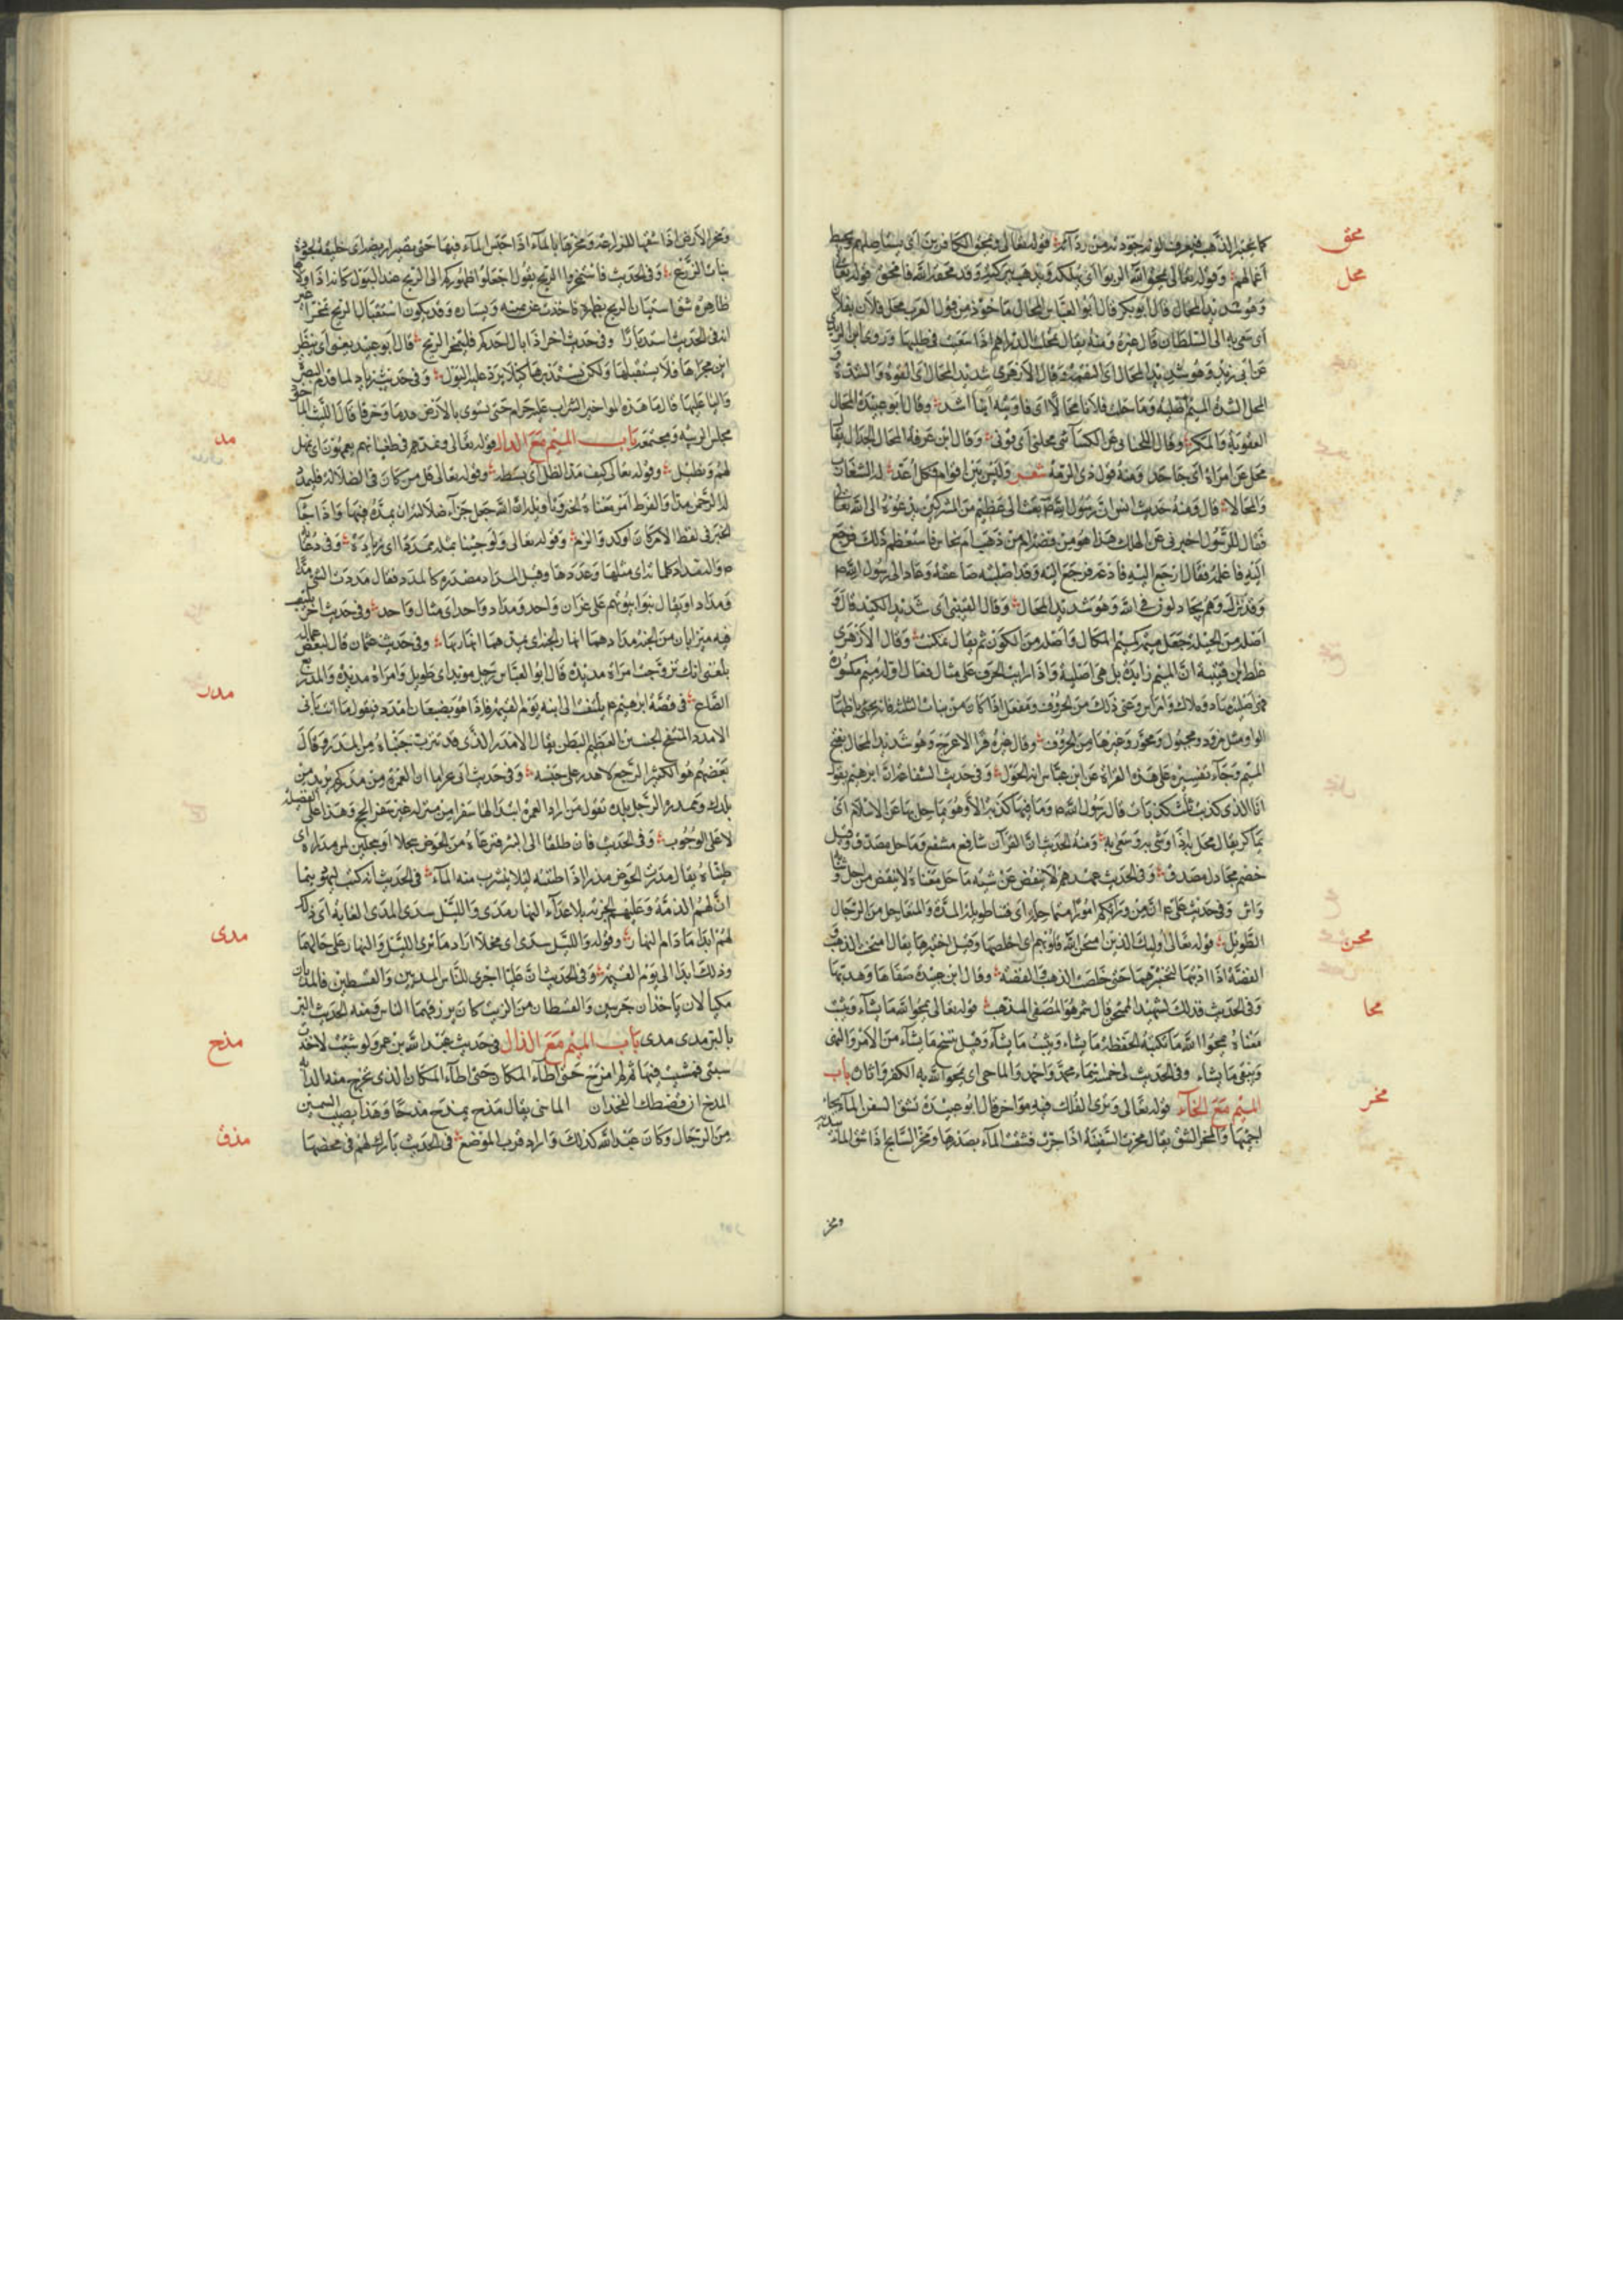 محق
كما يختبر الذهب فيعرف بالنار جودته من رداءته قوله تعالى ويمحق الكافرين اى يستاصلهم ويحبط
اعمالهم وقوله تعالى يمحق الله الربوا اى يهلكه ويذهب ببركته وقد محقه الله فامحق قوله تعالى
محل
وهو شديد المحال قال ابو بكر قال ابو العباس المحال ماخوذ من قول العرب محل فلان بفلان
اى سعى به الى السلطان قال غيره ومنه يقال تمحلت الدراهم اذا سعيت فى طلبها وروى ابن اليزيدى
عن ابى زيد وهو شديد المحال اى النقمة وقال الازهرى شديد المحال اى القوة والشدة و
المحل الشدة الميم اصلية وماحلت فلانا محالا اى قاويته اينا اشد وقال ابو عبيدة المحال
العقوبة والمكر وقال اللحيانى عن الكسائى محلنى اى قونى وقال ابن عرفة المحال الجدال يقال
محل عن امراة اى جاحدل ومنه قول ذى الرمة شعر ولبس بين اقوام فكل اعد له الشغازب
والمحالا قال ومنه حديث انس ان رسول الله ص بعث الى عظيم من المشركين يدعوه الى الله تعالى
فقال للرسول اخبرنى عن الهك هذا هو من فضة ام من ذهب ام نحاس فاستعظم ذلك فرجع
اليه فاعلمه فقال ارجع اليه فادعه فرجع اليه وقد اصابته صاعقة وعاد الى رسول الله ص
وقد نزلت وهم يجادلون فى الله وهو شديد المحال وقال القتيبى اى شديد الكيد قال و
اصله من الحيلة جعل ميمه كميم المكان واصله من الكون ثم يقال تمكنت وقال الازهرى
غلط ابن قتيبة ان الميم زايدة بل هى اصلية واذا رايت الحرف على مثال فعال اوله ميم مكسورة
فهى اصلية مثل مهاد وملاك ومراس وغير ذلك من الحروف ومفعل اذا كان من بنات الثلاثة فانه يجئ باظهار
الواو مثل مزود ومجول ومحور وغيرها من الحروف وقال غيره قرا الاعرج وهو شديد المحال بفتح
الميم وجاء تفسيره على هذه القراءة عن ابن عباس انه الحول وفى حديث الشفاعة ان ابرهيم يقول
انا الذى كذبت ثلث كذبات قال رسول الله ص وما فيها كذبة الا وهو يماحل بها عن الاسلام اى
يماكر يقال محل به اذا وشى به وسعى به ومنه الحديث ان القرآن شافع مشفع وماحل مصدق وقيل
خصم مجادل مصدق وفى الحديث عهدهم لا ينقض عن شية ماحل معناه لا ينقض من اجل وشاية
واش وفى حديث على ع ان من ورائكم امورا متماحلة اى فتنا طويلة المدة والمتماحل من الرجال
محن
الطويل قوله تعالى اوليك الذين امتحن الله قلوبهم اى اخلصها وقيل اختبرها يقال امتحنت الذهب و
الفضة اذا اذبتهما لتختبرهما حتى خلصت الذهب والفضة وقال ابن عبيدة صفاها وهذبها
محا
وفى الحديث فذلك الشهيد الممتحن قال شمر هو المصفى المهذب قوله تعالى يمحوا الله ما يشاء ويثبت
معناه يمحوا الله ما تكتبه الحفظة ما يشاء ويثبت ما يشاء وقيل ينسخ ما يشاء من الامر والنهى
ويبقى ما يشاء وفى الحديث لى خمسة اسماء محمد واحمد والماحى اى يمحو الله به الكفر واثاره باب
مخر
الميم مع الخاء قوله تعالى وترى الفلك فيه مواخر قال ابو عبيدة تشق السفن الماء بجآجئها
لجيتها والمخر الشق يقال مخرت السفينة اذا جرت فشقت الماء بصدرها ومخر السابح اذا شق الماء بيديه
ومخر
ومخر الارض اذا شقها للزراعة ومخرها بالماء اذا حبس الماء فيها حتى يصير اريضة اى خليقة لجودة
نبات الزرع وفى الحديث فاستمخروا الريح يقول اجعلوا ظهوركم الى الريح عند البول كانه اذا ولاها
ظاهره شق استنان الريح بظهره فاخذت عن يمينه ويساره وقد يكون استقبال الريح تمخرا غير
انه فى الحديث استدبارا وفى حديث اخر اذا بال احدكم فليتمخر الريح قال ابو عبيد يعنى اى ينظر
اين مجراها فلا يستقبلها ولكن يستدبرها كيلا يرد عليه البول وفى حديث زياد لما قدم البصرة
واليا عليها قال ما هذه المواخير الشراب عليه حرام حتى تسوى بالارض هدما وحرقا قال الليث الماخور
مد
مجلس الريبة ومجتمعه باب الميم مع الدال قوله تعالى ويمدهم فى طغيانهم يعمهون اى يمهل
لهم ويطيل وقوله تعالى كيف مد الظل اى بسطه وقوله تعالى قل من كان فى الضلالة فليمدد
له الرحمن مدا واللفظ امر معناه الخبر وتاويله ان الله جعل جزاء ضلالته ان يمده فيها واذا جاء
الخبر فى لفظ الامر كان اوكد والزم وقوله تعالى ولو جئنا بمثله مددا اى زيادة وفى دعائه
ص والمداد كلماته اى مثلها وعددها وقيل المداد مصدره كالمدد فقال مددت الشئ مدا
ومدادا ويقال بنوا بيوتهم على غرار واحد ومداد واحد اى مثال واحد وفى حديث اخر ينبعث
فيه ميزابان من الجنة مدادهما انهار الجنة اى يمدهما انهارها وفى حديث عثمان قال لبعض عماله
بلغنى انك تزوجت امراة مديدة قال ابو العباس رجل مديد اى طويل وامراة مديدة والمد ربع
مدر
الصاع فى قصة ابرهيم ع يلتفت الى ابيه يوم القيمة فاذا هو بضبعان امدر فيقول ما انت بابى
الامدر المنتفخ الجنبين العظيم البطن يقال الامدر الذى قد تترب جنباه من المدر وقال
بعضهم هو الكثير الرجيع لا يقدر على حبسه وفى حديث ابى ذر اما ان العمرة من مدركم يريد من
بلدكم ومدرة الرجل بلده يقول من اراد العمرة ابتدا لها سفرا من منزله غير سفر الحج وهذا على الفضيلة
لا على الوجوب وفى الحديث فانطلقا الى البئر فنزعا من الحوض سجلا او سجلين ثم مدراه اى
طيناه يقال مدرت الحوض مدرا اذا طينته ليلا يتسرب منه الماء فى الحديث انه كتب ليهود تيما
ان لهم الذمة وعليهم الجزية بلا عداء النهار مدى والليل سدى المدى الغاية اى ذلك
مدى
لهم ابدا ما دام النهار وقوله والليل سدى اى مخلا اراد ما ترى الليل والنهار على حالهما
وذلك ابدا الى يوم القيمة وفى الحديث ان عليا اجرى للناس المديين والقسطين فالمديان
مكيالان ياخذان جريبين والقسطان من الزيت كان يرزقهما الناس ومنه الحديث البر
مذح
بالبر مدى مدى باب الميم مع الذال فى حديث عبد الله بن عمرو لو شئت لاخذت
سبتى فمشيت فيها ثم لم امذح حتى اطاء المكان حتى اطاء المكان الذى تخرج منه الدابة
المذح ان تصطك الفخذان الماشى يقال مذح يمذح مذحا وهذا يصيب السمين
مذق
من الرجال وكان عبد الله كذلك واراد قرب الموضع فى الحديث بارك لهم فى محضها